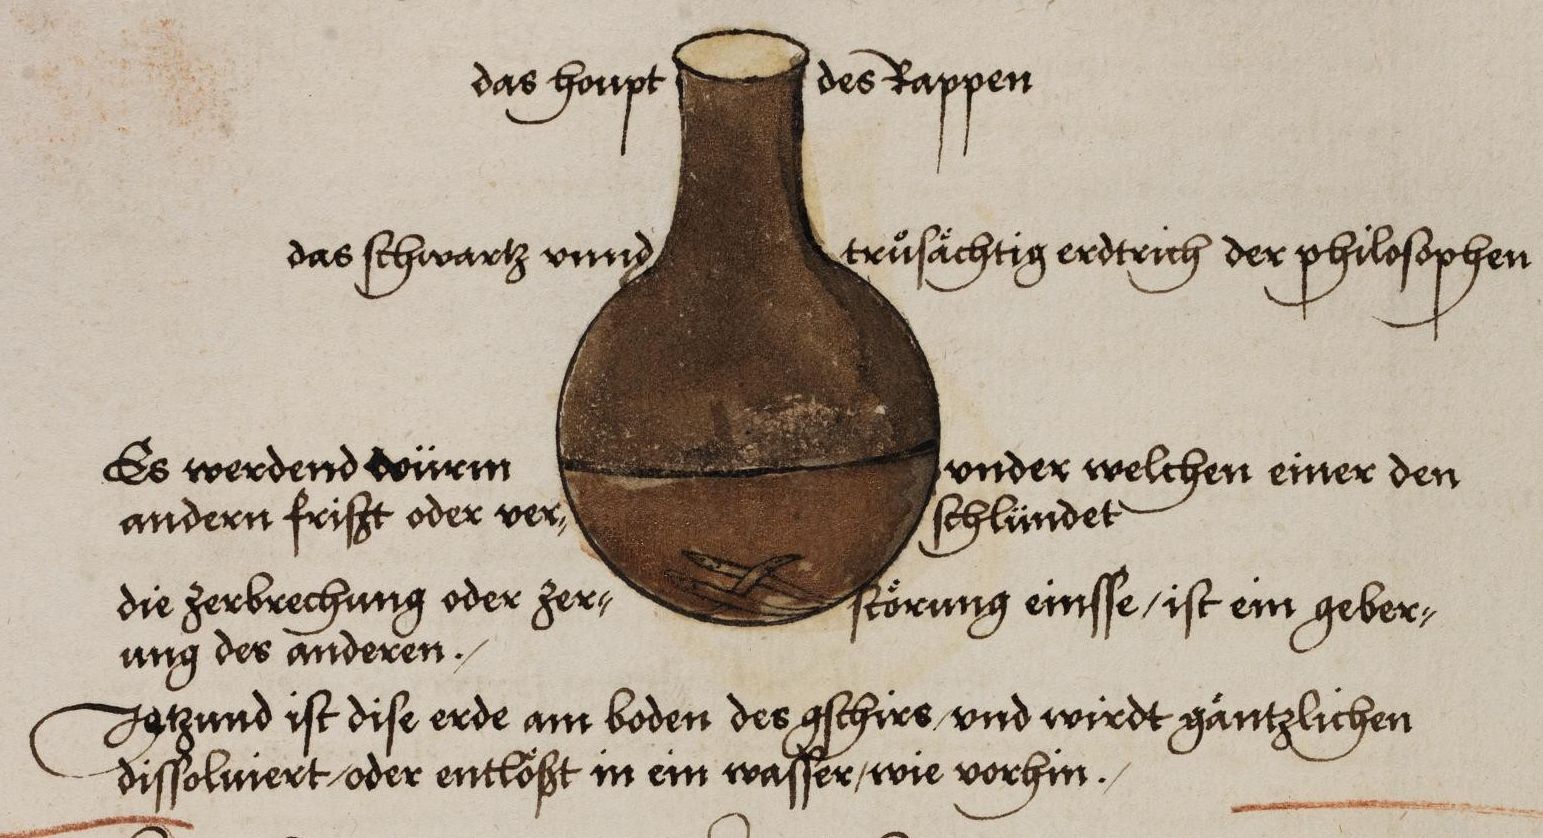 das houpt des Rappen
das schwartz vnnd truͦsaͤchtig erdtrich der philosophen
Es werdend würm vnder welchen einer den
andern frißt oder ver⸗ schlündet
die zerbrechung oder zer⸗ stoͤrung einsse / ist ein geber⸗
ung des anderen . /
Jetzund ist dise erde am boden des gschirs / vnd wirdt gaͤntzlichen
dissoluiert / oder entloͤßt in ein wasser / wie vorhin . /